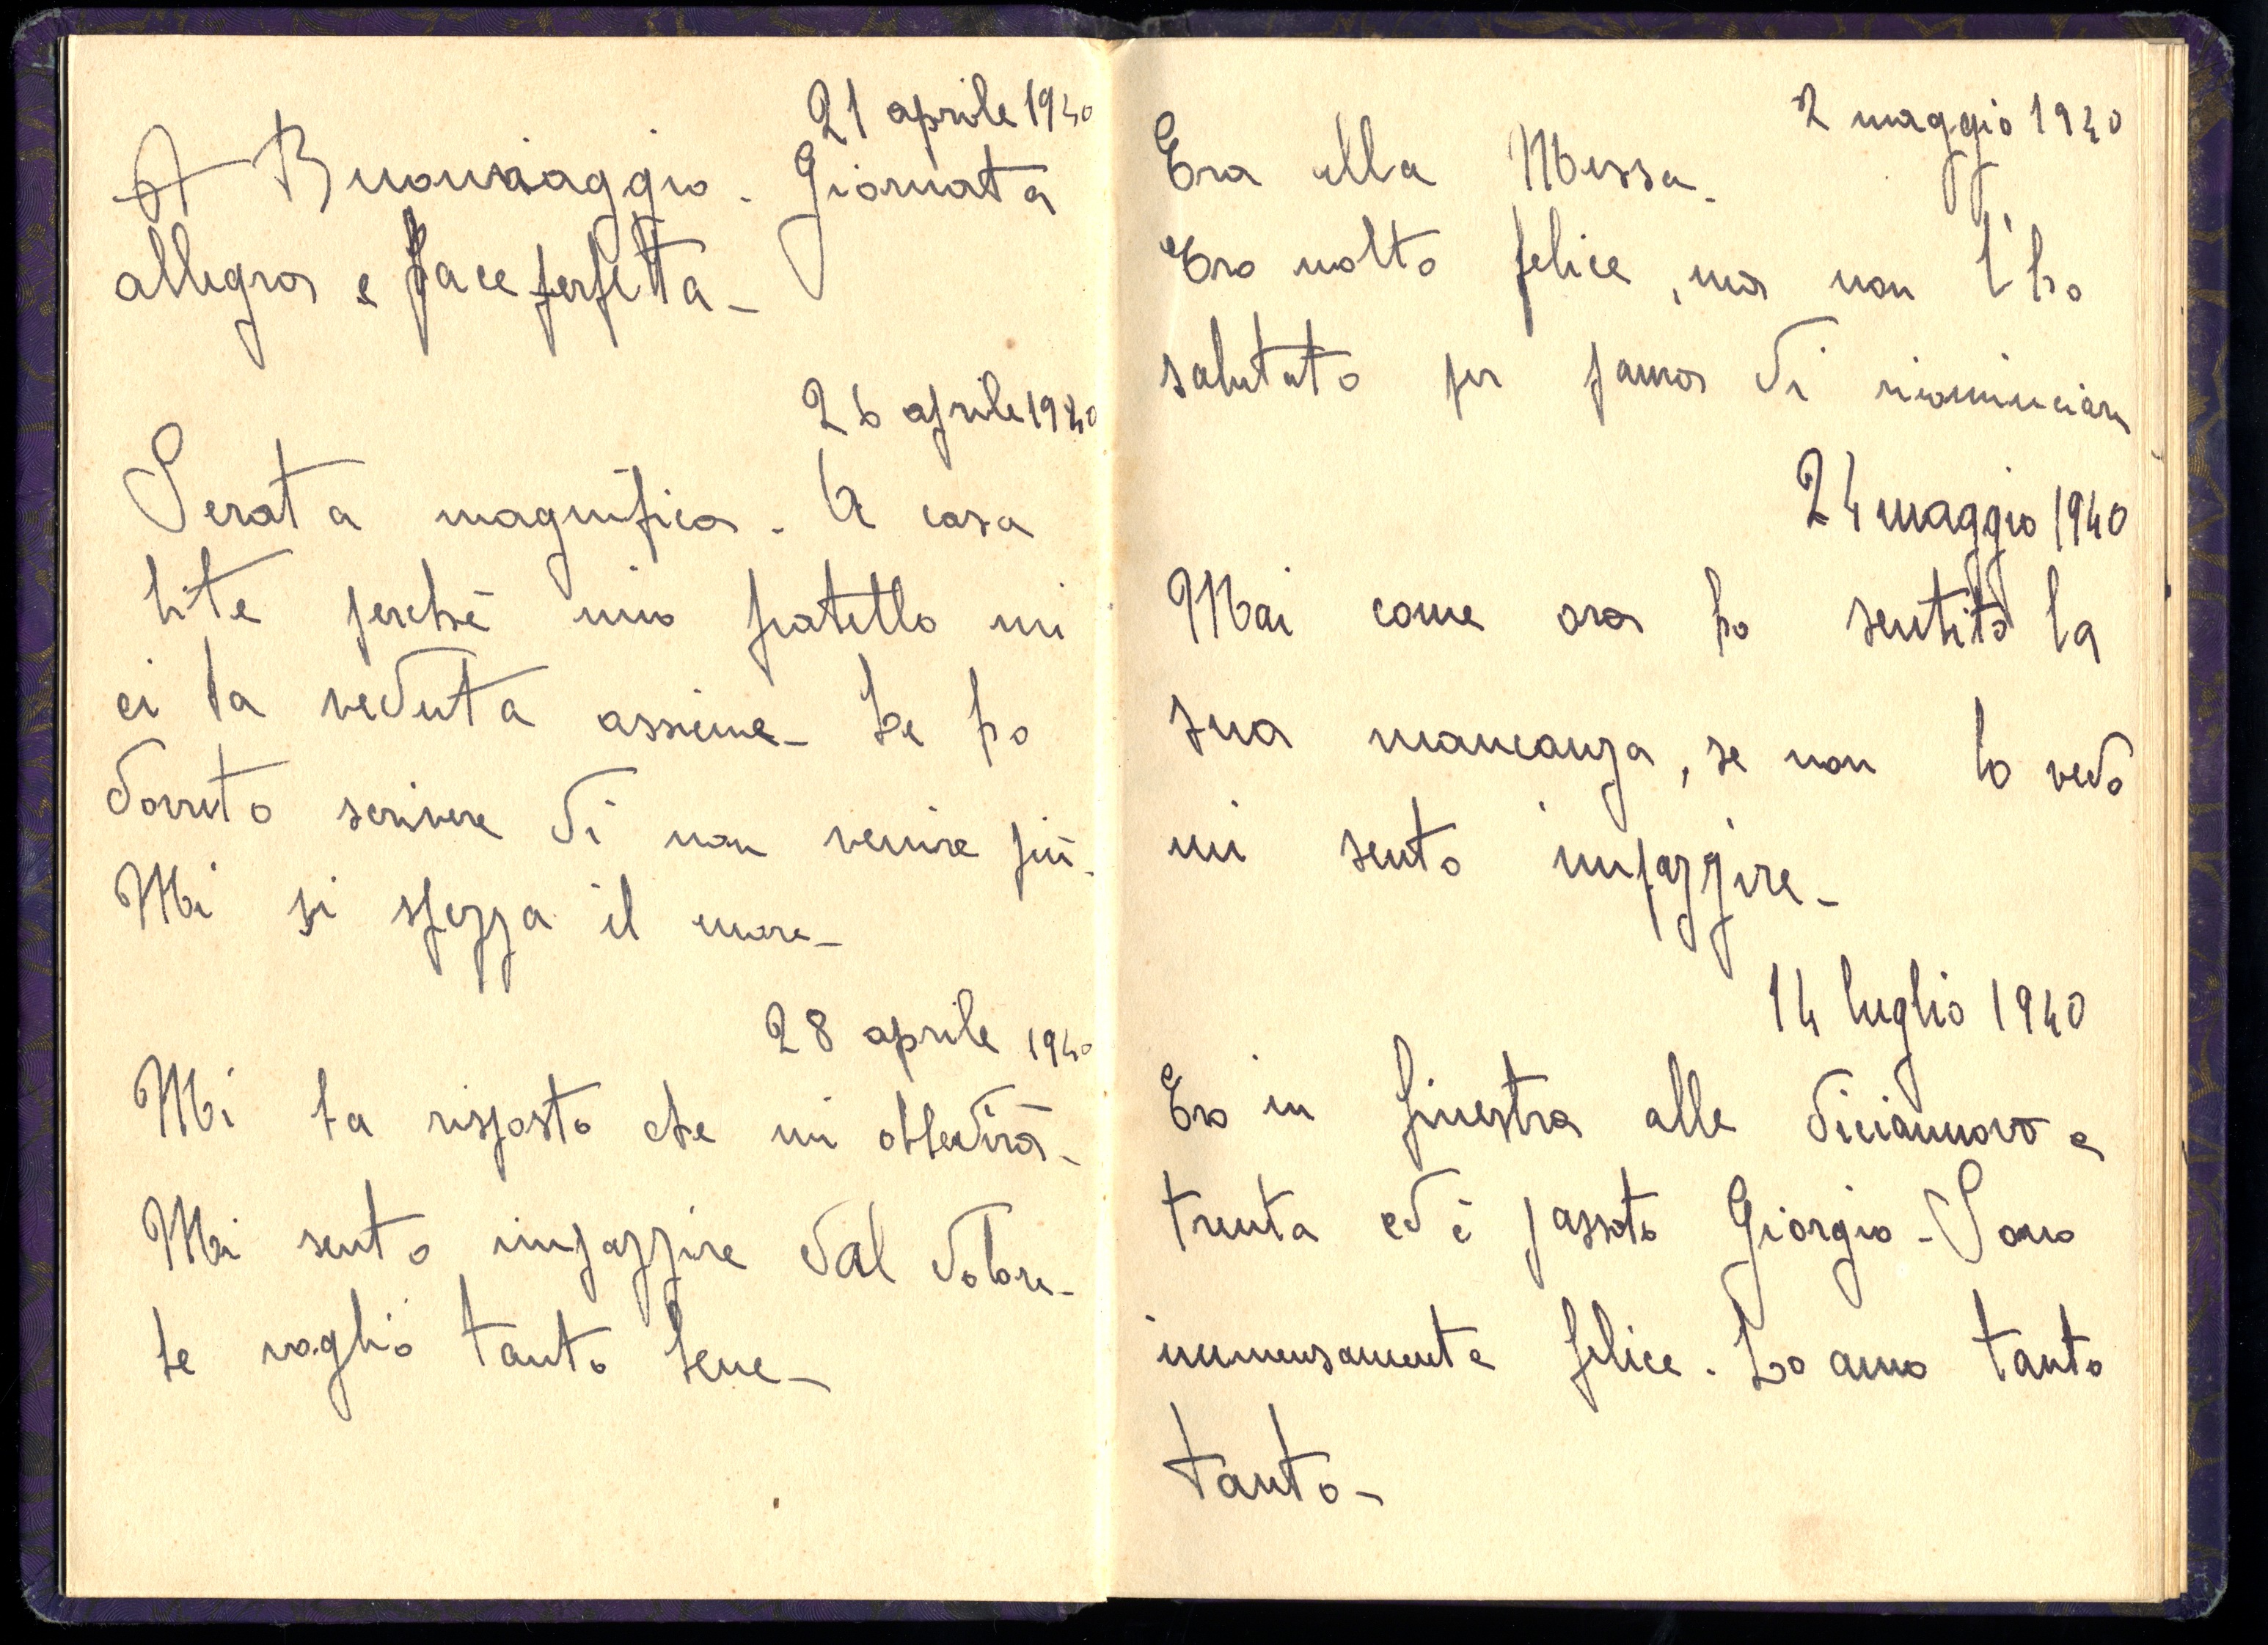 21 aprile 1940
A Buonviaggio. Giornata
allegra e pace perfetta-
26 aprile 1940
Serata magnifica. A casa
lite perchè mio fratello mi
ci ha veduta assieme- Le ho
dovuto scrivere di non venire più-
Mi si spezza il cuore-
28 aprile 1940
Mi ha risposto che mi obbedirà-
Mi sento impazzire dal dolore-
Le voglio tanto bene-
2 maggio 1940
Era alla Messa-
Ero molto felice, ma non l'ho
salutato per paura di ricominciare
24 maggio 1940
Mai come ora ho sentito la
sua mancanza, se non lo vedo
mi sento impazzire-
14 luglio 1940
Ero in finestra alle diciannove e
trenta ed è passato Giorgio- Sono
immensamente felice. Lo amo tanto
tanto-